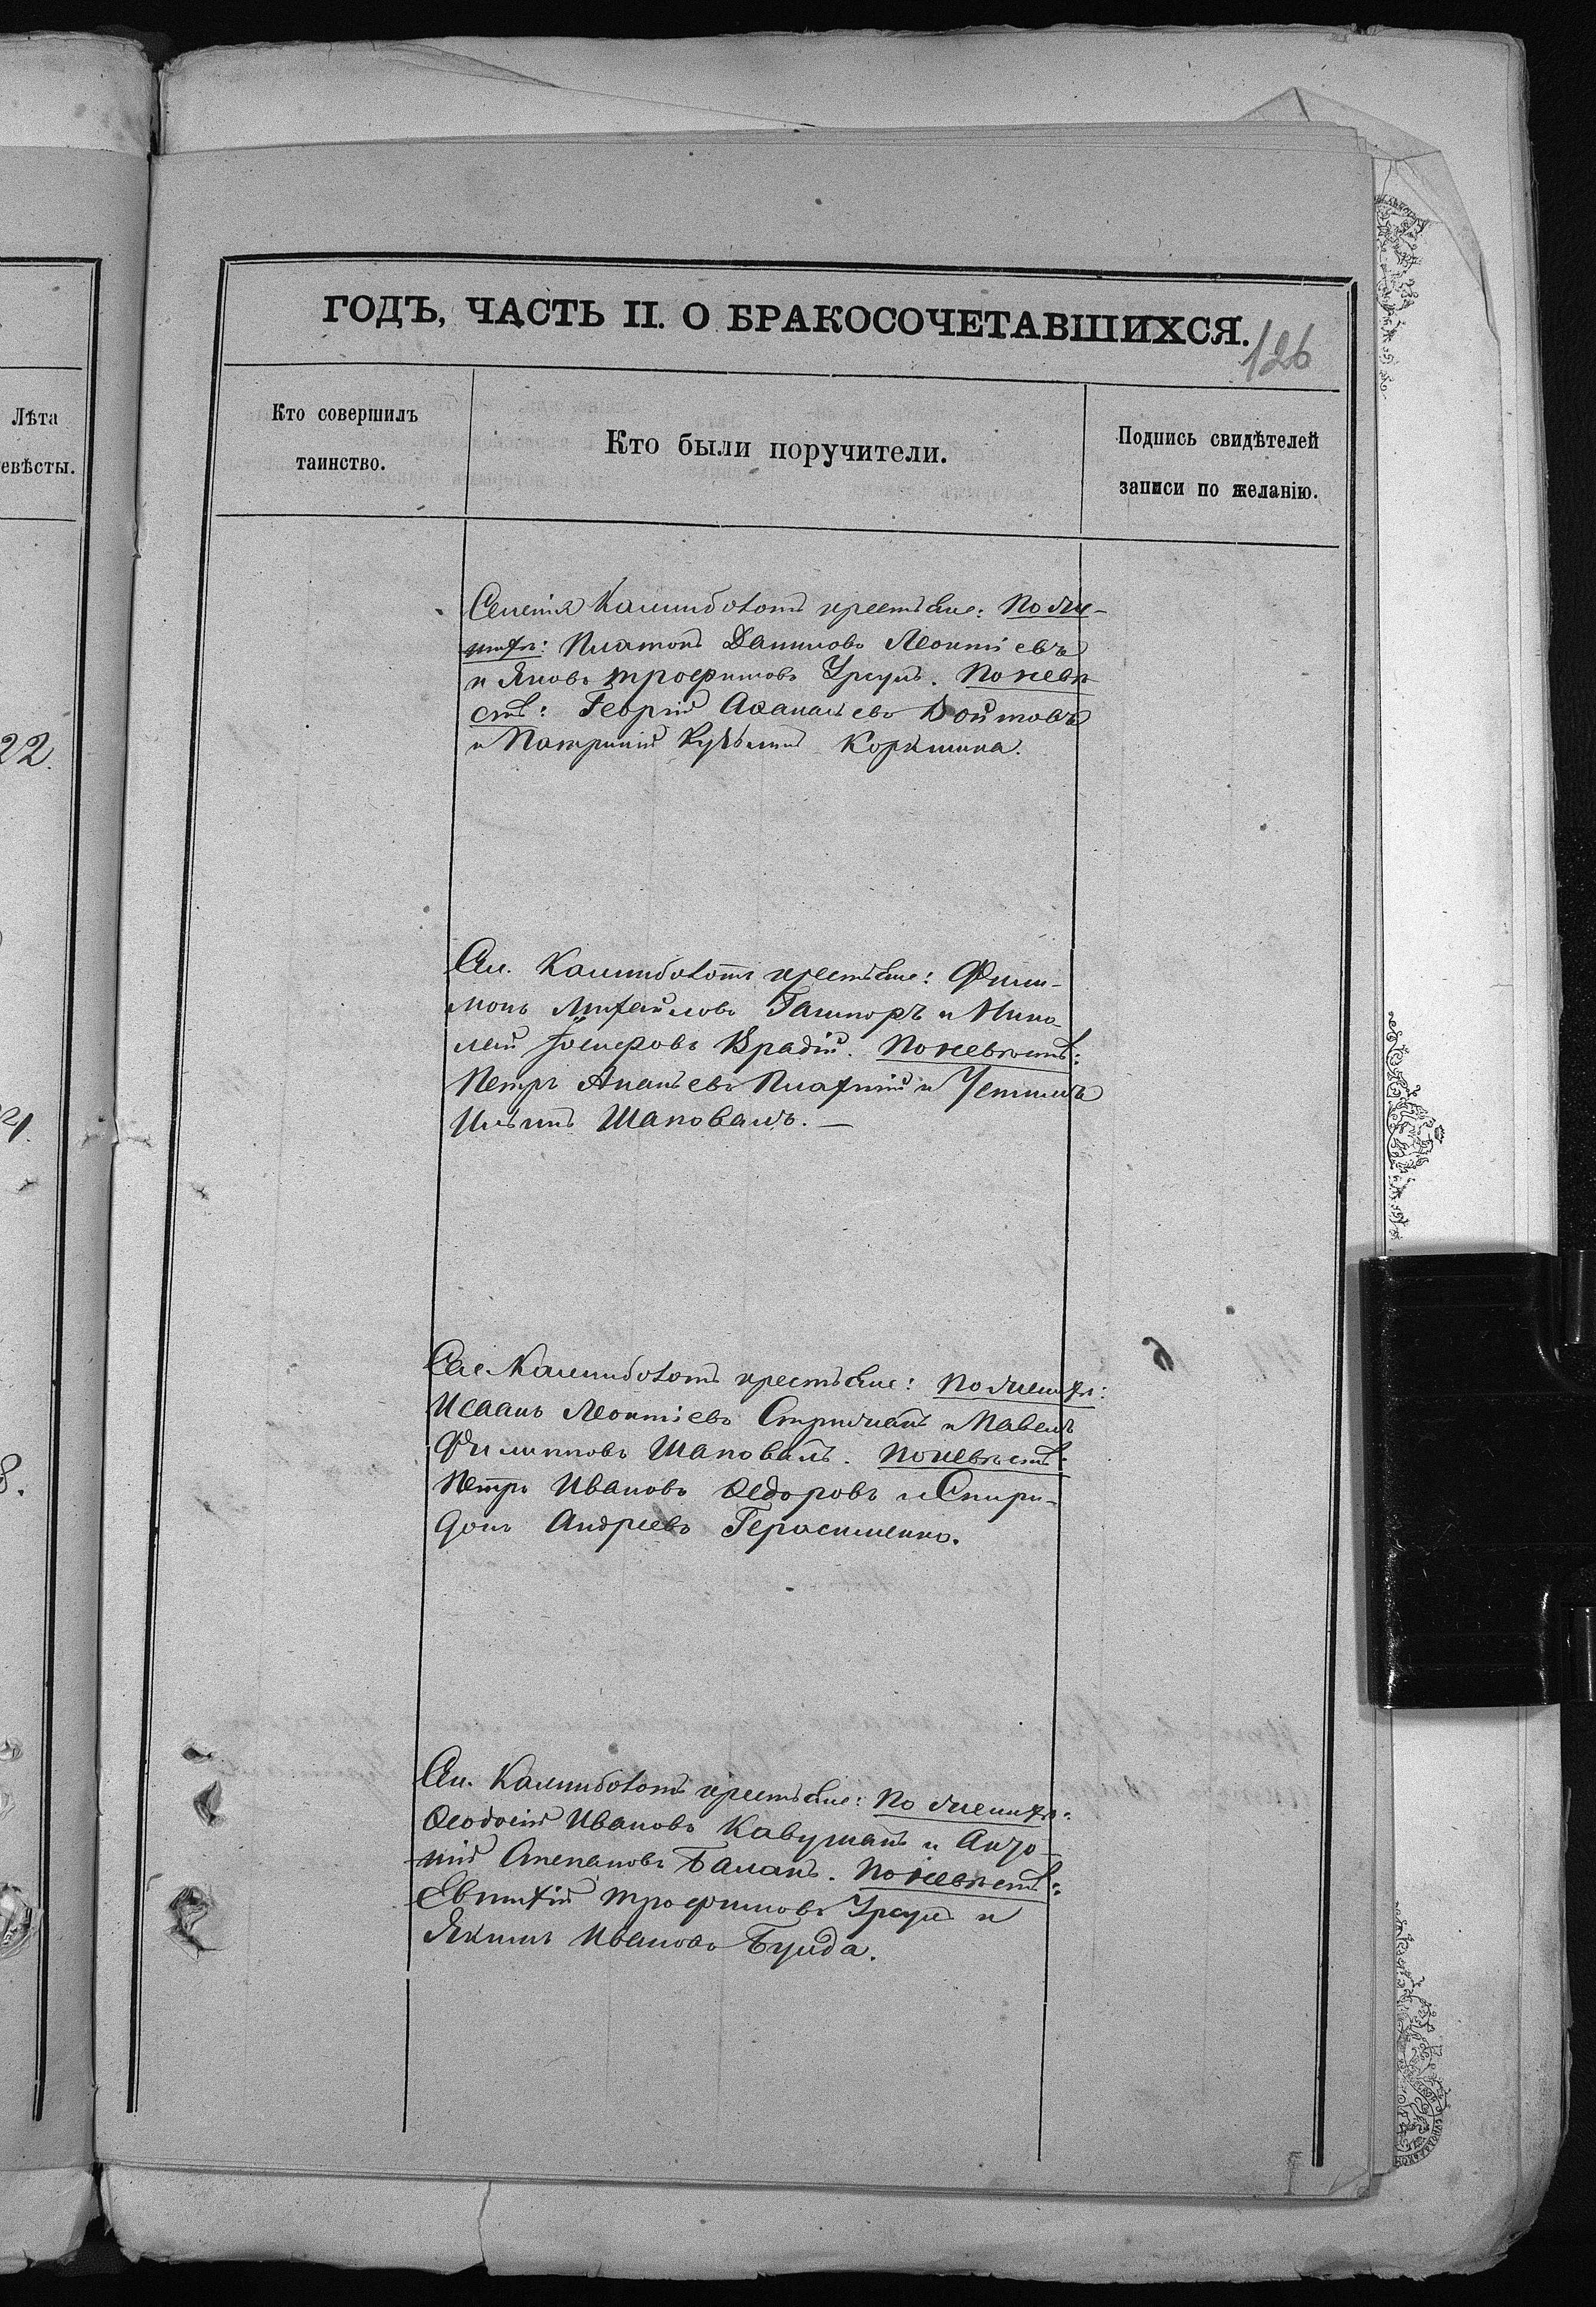 Лѣта
евѣсты.
22.
21.
8.
ГОДЪ, ЧАСТЬ II. О БРАКОСОЧЕТАВШИХСЯ.
126
Кто совершилъ
таинство.
Кто были поручители.
Подпись свидѣтелей
записи по желанію.
Селенія крестьяне: По же-
нихѣ: Платонъ Даниловъ Леонтіевъ
и Яковъ Трофимовъ Урсулъ. По невѣ
стѣ: Георгій Аѳанасьевъ Войтовъ
и Патрикій Кузьминъ
Сел. крестьяне: Фили-
монъ Михайловъ и Нико-
лай Іосифовъ Врадій. По невѣстѣ:
Петръ Ананьевъ и Устинъ
Ильинъ Шаповалъ. —
Сел. крестьяне: По женихѣ:
Исаакъ Леонтіевъ и Павелъ
Филипповъ Шаповалъ. По невѣстѣ:
Петръ Ивановъ Ѳедоровъ и Спири-
донъ Андреевъ Герасименко.
Сел. крестьяне: По женихѣ:
Ѳеодосій Ивановъ и Анто-
ній Степановъ Баланъ. По невѣстѣ:
Евтихій Трофимовъ Урсулъ и
Якимъ Ивановъ